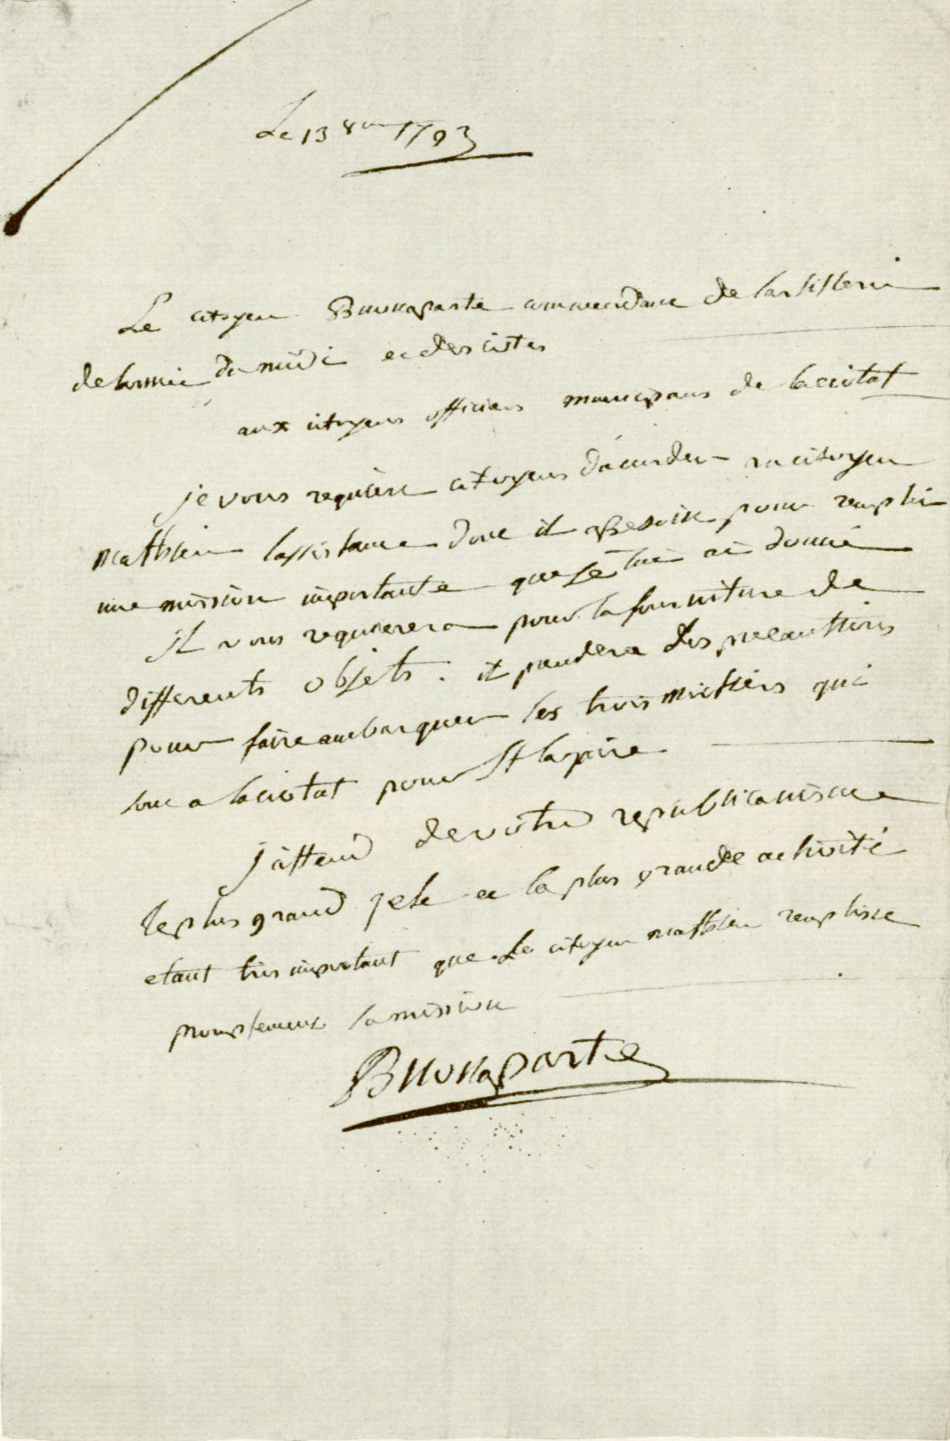 Le 13 8bre 1793
Le citoyen Buonaparte commendant de lartillerie
de larmée du midi et des côtes
aux citoyens officiers municipaux de laciotat
je vous requiere citoyens d'acorder au citoyen
mathieu lassistance dont il a Besoin pour remplir
une mission importante que je lui ai donné
Il vous requerera pour la fourniture de
differents objets : it prendera des precauttions
pour faire ambarquer les trois mortiers qui
sont a laciotat pour
J'attend de votre republicanisme
le plus grand zele et la plus grande activité
etant tres important que Le citoyen mathieu remplisse
promptement sa mission
Buonaparte